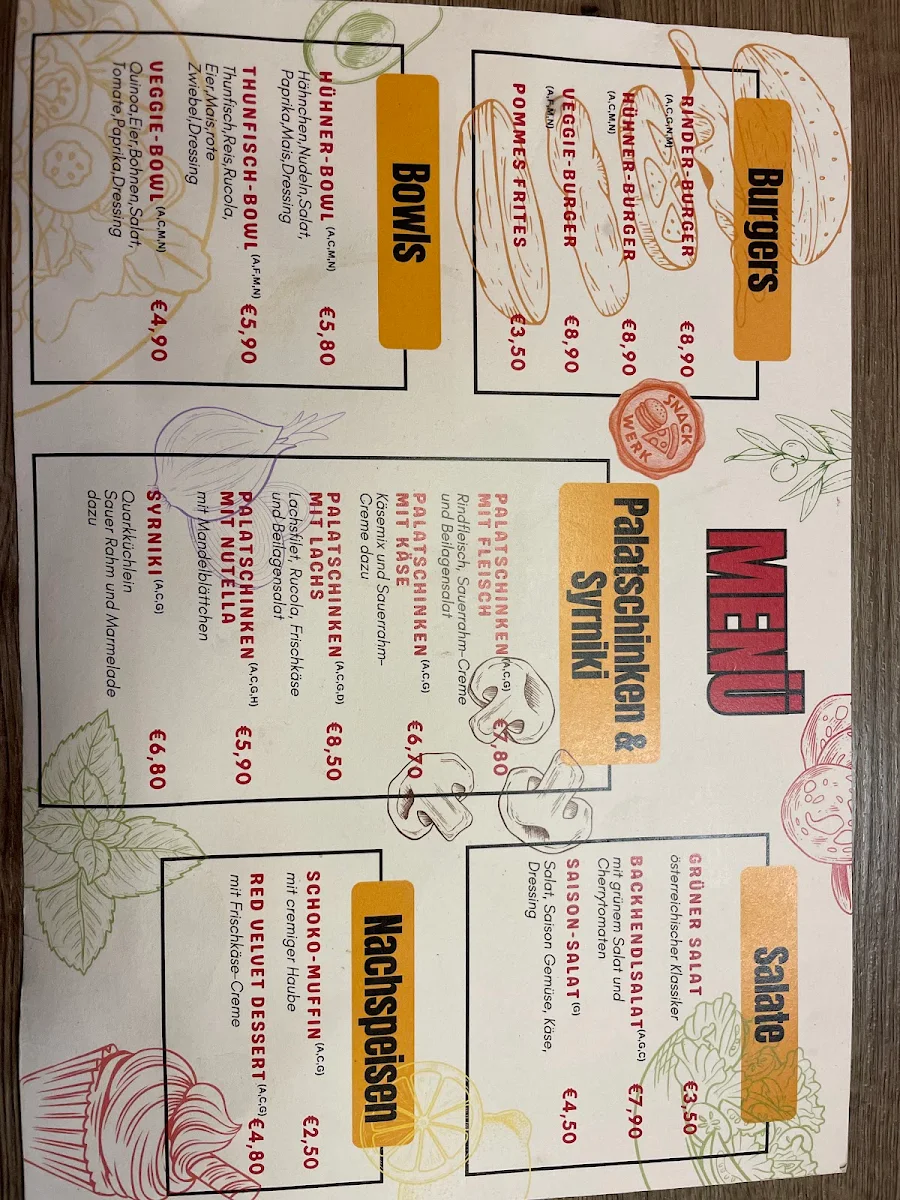 MENÜ
SNACK
WERK
Burgers
RINDER-BURGER €8,90
(A,C,G,N,M)
HÜHNER-BURGER €8,90
(A,C,M,N)
VEGGIE-BURGER €8,90
(A,F,M,N)
POMMES FRITES €3,50
Bowls
HÜHNER-BOWL (A,C,M,N) €5,80
Hähnchen,Nudeln,Salat,
Paprika,Mais,Dressing
THUNFISCH-BOWL (A,F,M,N) €5,90
Thunfisch,Reis,Rucola,
Eier,Mais,rote
Zwiebel,Dressing
VEGGIE-BOWL (A,C,M,N) €4,90
Quinoa,Eier,Bohnen,Salat,
Tomate,Paprika,Dressing
Palatschinken &
Syrniki
PALATSCHINKEN (A,C,G) €7,80
MIT FLEISCH
Rindfleisch, Sauerrahm-Creme
und Beilagensalat
PALATSCHINKEN (A,C,G) €6,70
MIT KÄSE
Käsemix und Sauerrahm-
Creme dazu
PALATSCHINKEN (A,C,G,D) €8,50
MIT LACHS
Lachsfilet, Rucola, Frischkäse
und Beilagensalat
PALATSCHINKEN (A,C,G,H) €5,90
MIT NUTELLA
mit Mandelblättchen
SYRNIKI (A,C,G) €6,80
Quarkküchlein
Sauer Rahm und Marmelade
dazu
Salate
GRÜNER SALAT €3,50
österreichischer Klassiker
BACKHENDLSALAT (A,G,C) €7,90
mit grünem Salat und
Cherrytomaten
SAISON-SALAT (G) €4,50
Salat, Saison Gemüse, Käse,
Dressing
Nachspeisen
SCHOKO-MUFFIN (A,C,G) €2,50
mit cremiger Haube
RED VELVET DESSERT (A,C,G) €4,80
mit Frischkäse-Creme